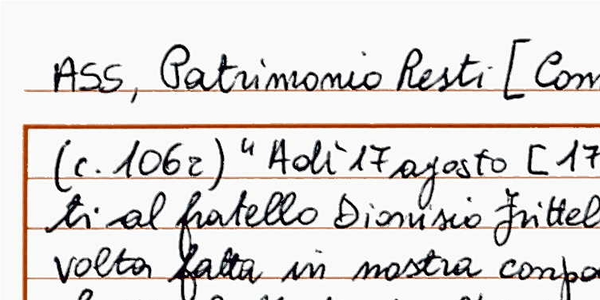 ASS, Patrimonio Resti [Com
(c. 106r) "Adì 17 agosto [17
ti al fratello Dionisio Frittel
volta fatta in nostra compa